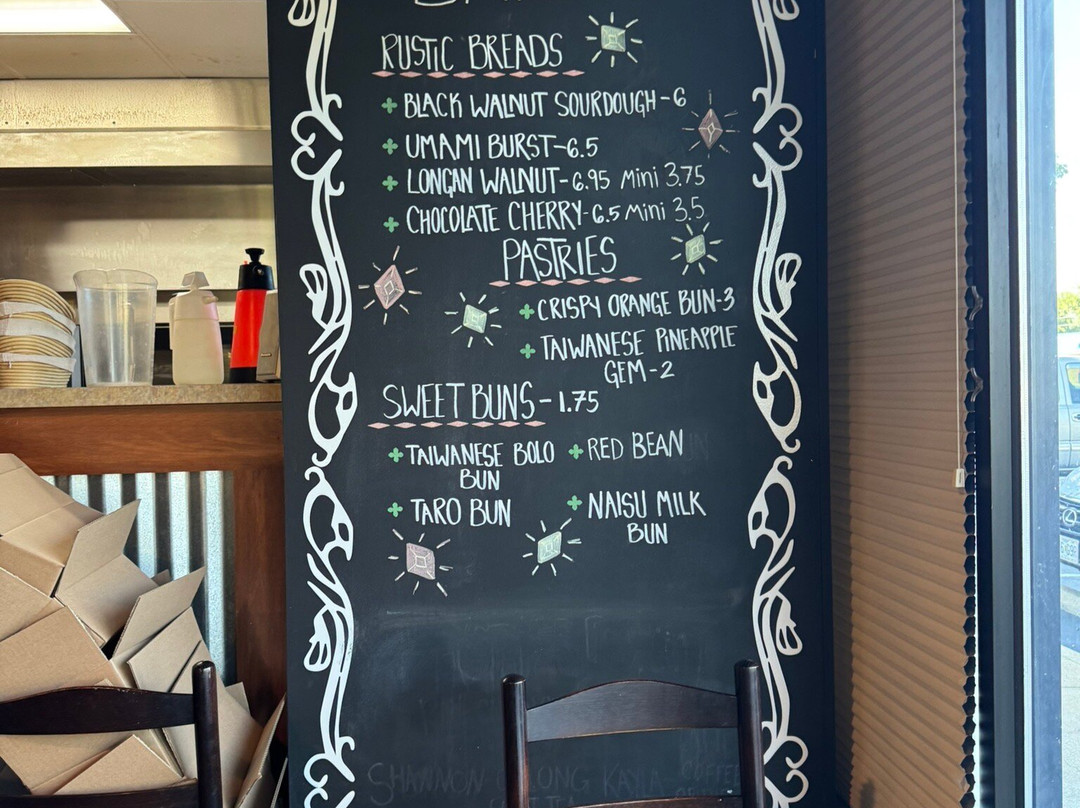 RUSTIC BREADS
BLACK WALNUT SOURDOUGH-6
UMAMI BURST-6.5
LONGAN WALNUT-6.95 Mini 3.75
CHOCOLATE CHERRY-6.5 Mini 3.5
PASTRIES
CRISPY ORANGE BUN-3
TAIWANESE PINEAPPLE
GEM-2
SWEET BUNS-1.75
TAIWANESE BOLO
BUN
RED BEAN
TARO BUN
NAISU MILK
BUN
SHANNON KAYLA COFFEE